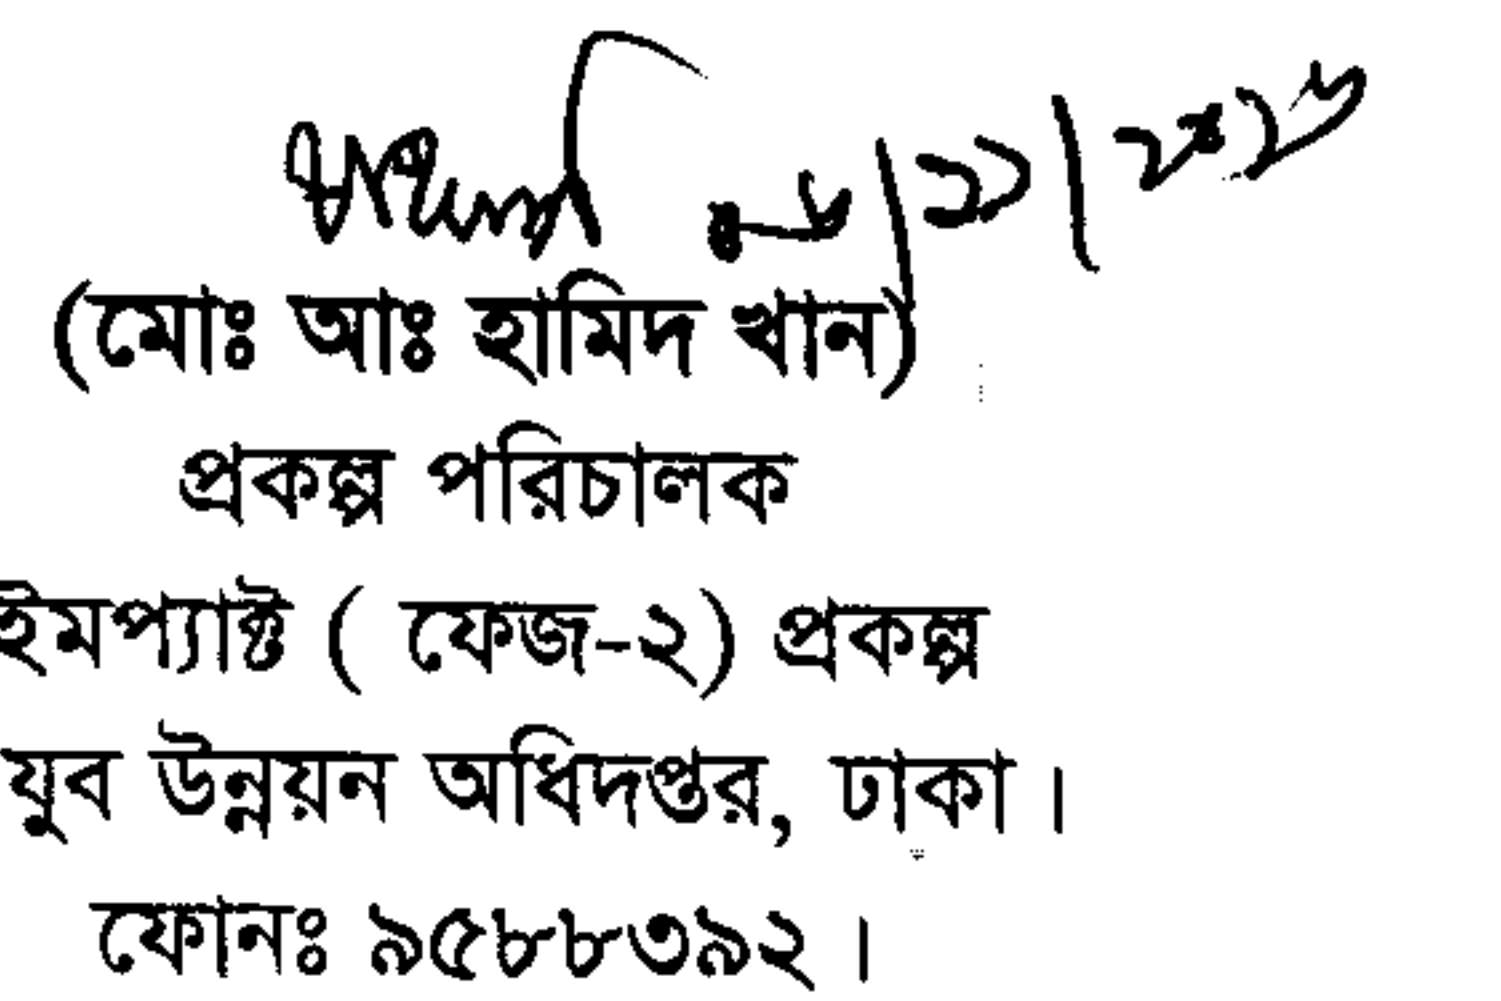 (মোঃ আঃ হামিদ খান)
প্রকল্প পরিচালক
ইমপ্যাক্ট ( ফেজ-২) প্রকল্প
যুব উন্নয়ন অধিদপ্তর, ঢাকা।
ফোনঃ ৯৫৮৮৩৯২।